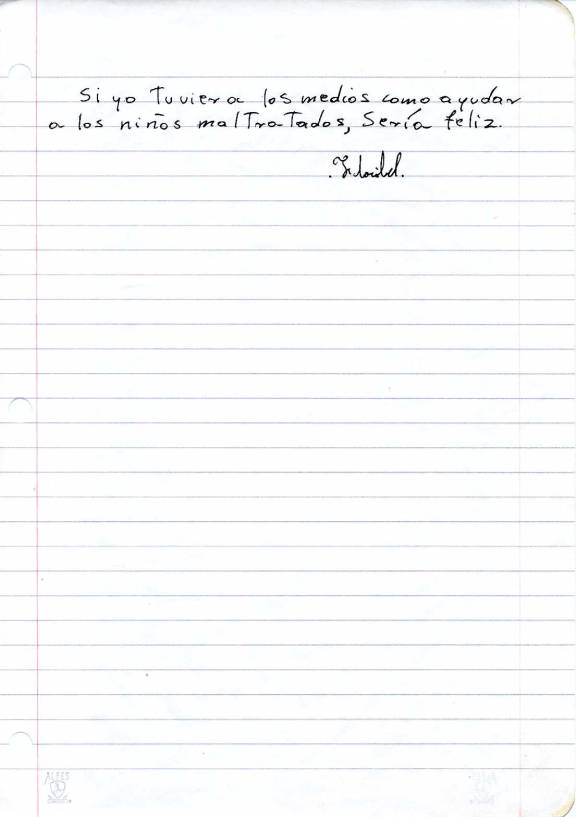 Si yo Tuviera los medios como ayudar
a los niños malTraTados, Sería feliz.
ALPES